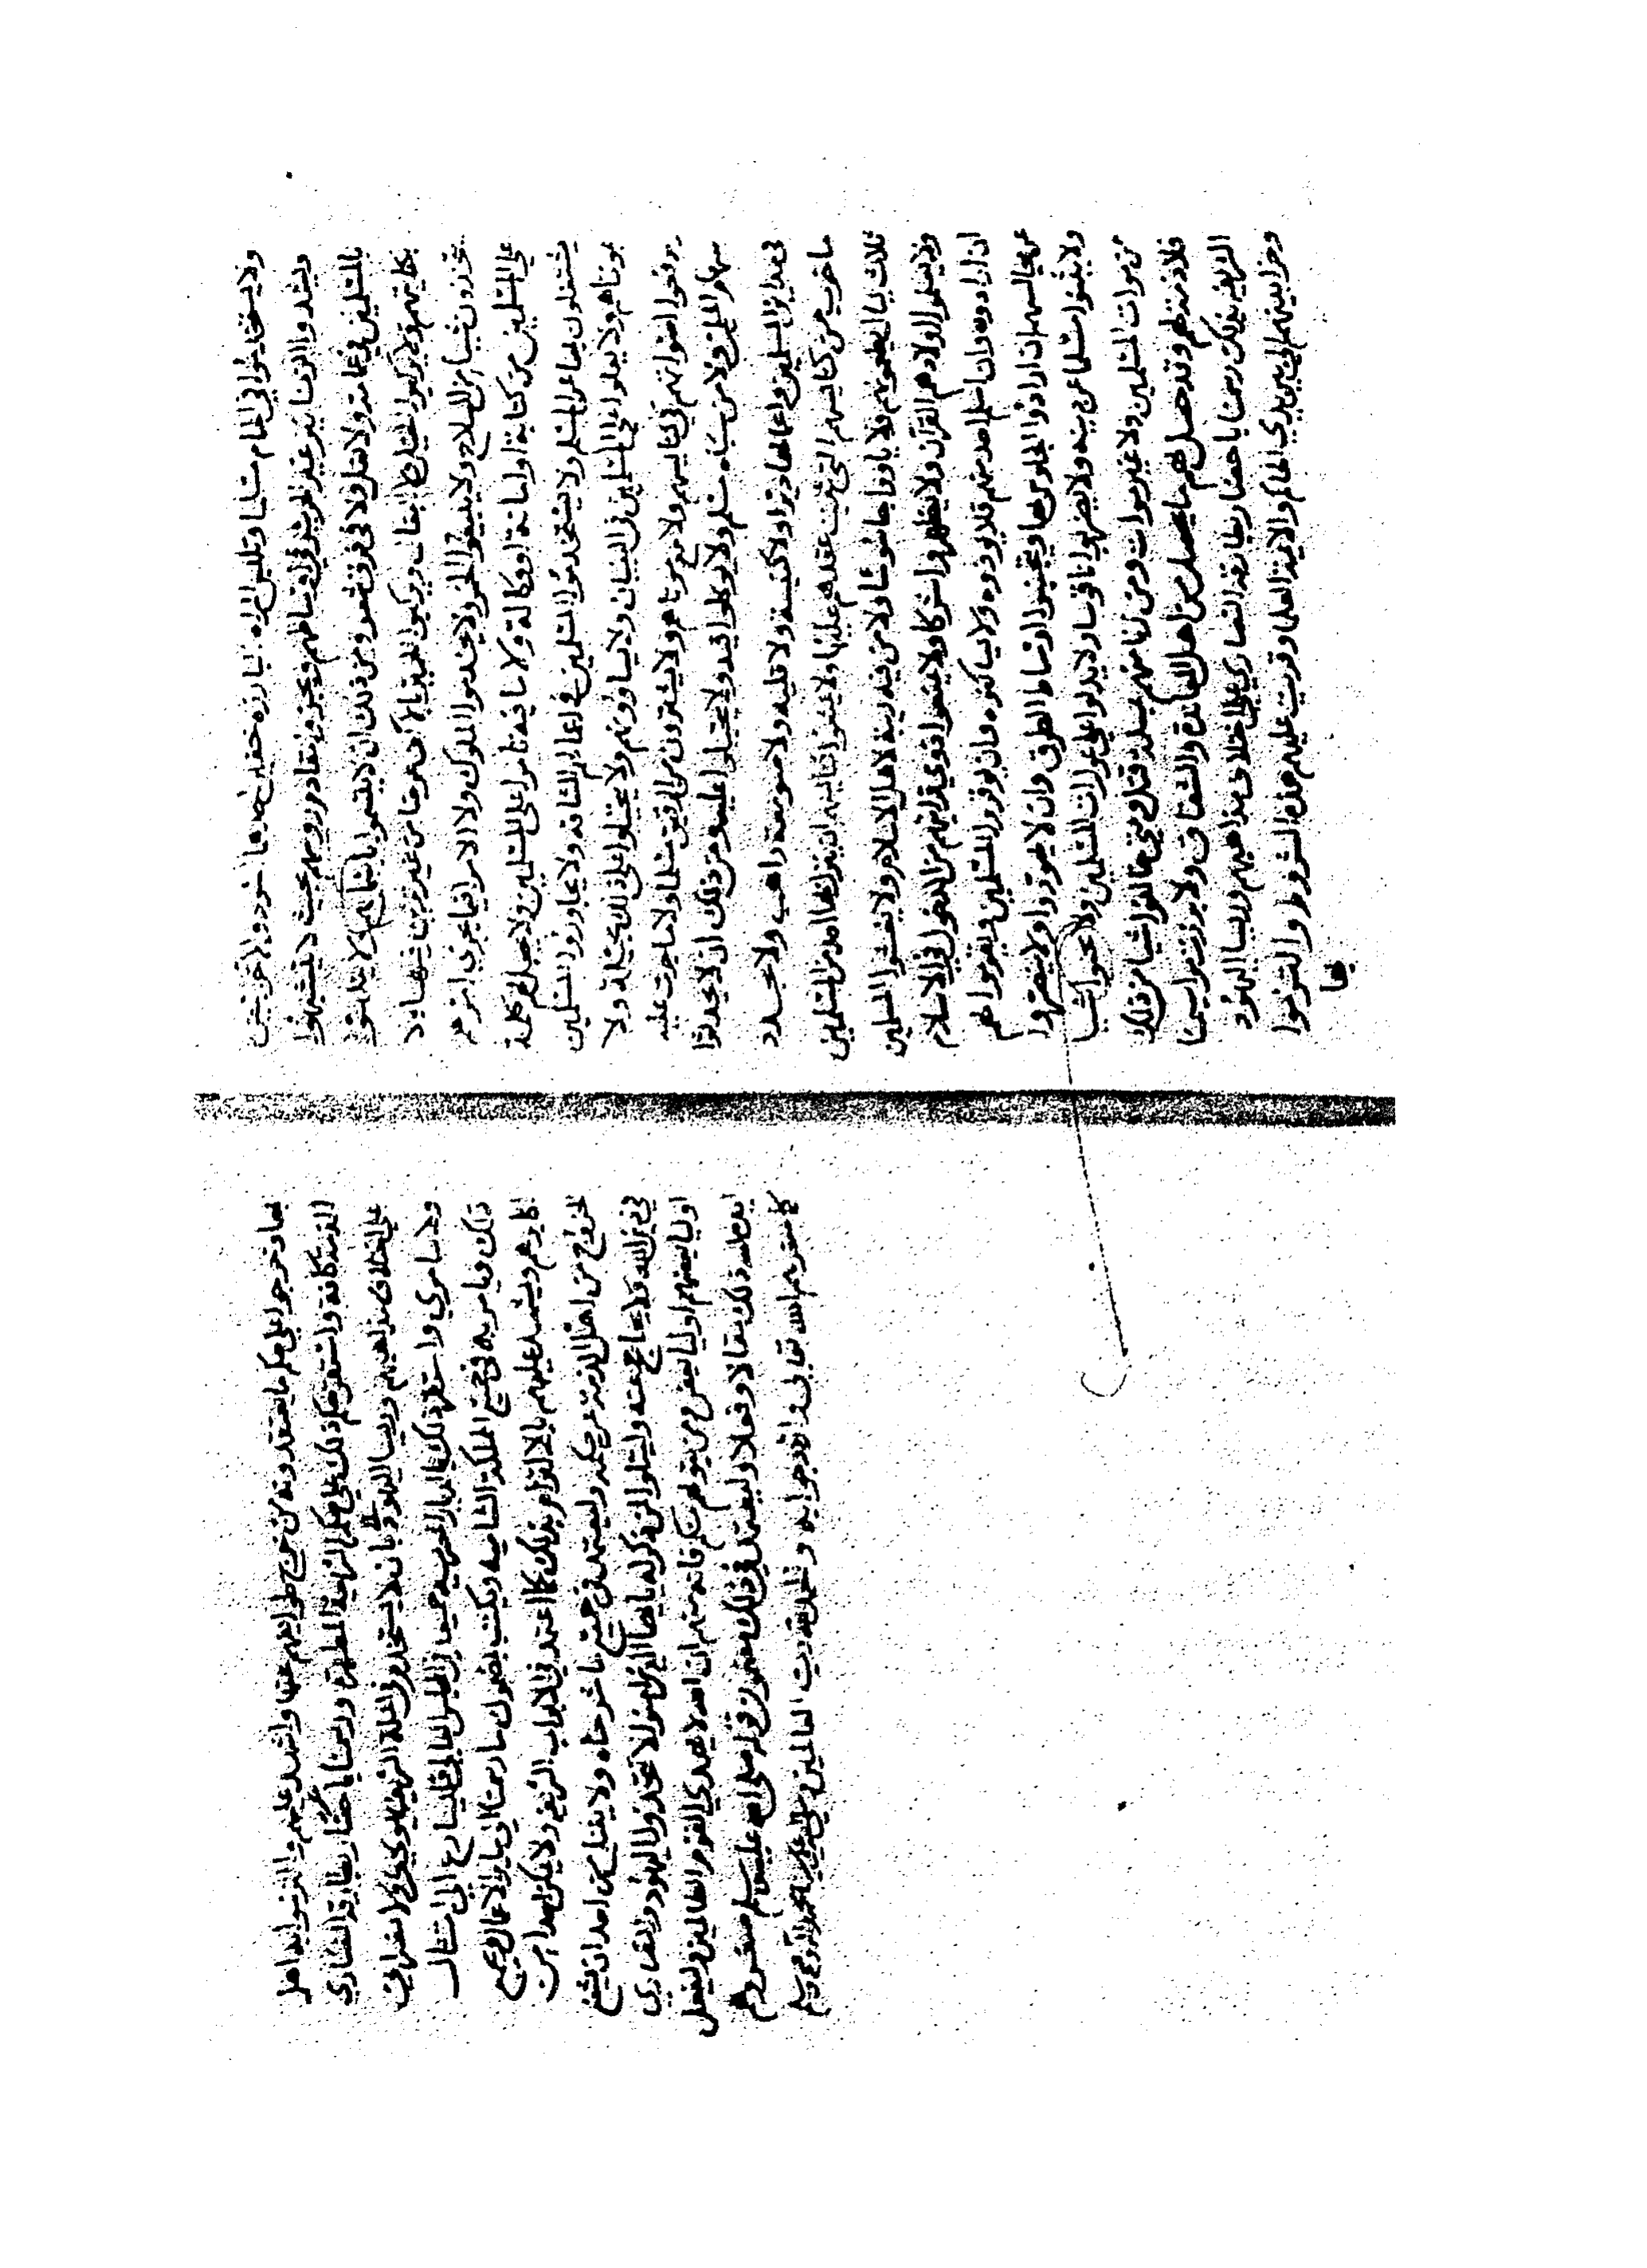 ولا يستخدموا في الحمام مسلما وتلبس المراة البارزة خفين احدهما اسود والاخر ابيض
ويشدوا الزنانير غير الحرير في اوساطهم ويجزوا مقادم روسهم بحيث لا يتشبهوا
بالمسلمين في عمامة ولا نعل ولا في فرق شعر ومن ذلك ان لا يتسموا باسمائهم ولا يكتنوا
بكناهم ولا يركبوا الخيل ولا البغال ويركبون الحمير بالاكف عرضا من غير تزيين لها ولا
يتخذون شيا من السلاح ولا يبيعوا الخمر ولا يخدموا الملوك ولا الامرا فيما يجري امرهم
على المسلمين من كتابة او امانة او وكالة ولا ما فيه تامر على المسلمين ولا يجعل لهم كلمة
يستعلون بها على المسلم ولا يستخدموا المسلمين في اعمالهم الشاقة ولا يجاوروا المسلمين
بموتاهم ولا يعلوا على المسلمين في البنيان ولا يساووهم ولا يتحيلوا على ذلك بحيلة ولا
يرفعوا اصواتهم في كنايسهم ولا على موتاهم ولا يشترون من الرقيق مسلما ولا ما جرت عليه
سهام المسلمين ولا من سباه مسلم ومن ذلك ان لا يحدثوا
في مداين المسلمين واعمالها ديرا ولا كنيسة ولا قلية ولا صومعة راهب ولا يجدد
ما خرب من كنايسهم التي ثبت عقدهم عليها ولا يمنعوا كنايسهم ان ينزلها احد من المسلمين
ثلاث ليال يطعمونهم ولا ياووا جاسوسا ولا من فيه ريبة لاهل الاسلام ولا يغشوا المسلمين
ولا يعلموا اولادهم القران ولا يظهروا شركا ولا يمنعوا ذوي قرابتهم من الدخول في الاسلام
ان ارادوه وان اسلم احد منهم فلا يوذوه ولا يساكنوه وان يوقروا المسلمين ويقوموا لهم
عن مجالسهم ان ارادوا الجلوس بها ويتجنبوا اوساط الطرق وان لا يهودوا ولا ينصروا
ولا يفتنوا مسلما عن دينه ولا يضربوا ناقوسا ولا يدلوا على عورات المسلمين ولا يحيوا شيا
من موات المسلمين ولا غير موات ومن زنا منهم بمسلمة قتل ومتى خالفوا شيا من ذلك
فلا ذمة لهم وقد حل لهم ما يحل من اهل المعاندة والشقاق ولما برزت مراسيمنا
الشريفة بذلك رسمنا باحضار بطارقة النصاري على اختلاف مذاهبهم وريسا اليهود
وحزانينهم الى بين يدي الحاكم والايمة العلما وقريت عليهم هذه الشروط والتزموا
بها
بها وخرجوا على حكم ما يعتقدونه من خرج طوايفهم عنها واشهد عليهم بالتزامها اهل
الذمة كافة واستقر حكم ذلك على حكم الشريعة المطهرة ورسمنا باحضار بطارقة النصاري
على اختلاف مذاهبهم وريسا اليهود بان لا يستخدم في المملكة الشريفة يهودي ولا نصراني
ولا سامري واستقر ذلك بالديار المصرية جميعا فالمجلس العالي فليسارع الى امتثال
ذلك ويامر به في جميع المملكة الشامية ويكتب بمضمون مارسمنا الى ساير الاعمال وجميع
اكابرهم ويشهد عليهم بالالتزام بذلك كما اعتمد في الابواب الشريفة ولا يمكن احدا من
الخروج من اهل الذمة عن حكمه وليعتمد في جميع ما شرحناه ولا يقبل من احد ان يشفع
في دين الله فلا يراجع عنه وليتلوا المذكور يا ايها الذين امنوا لا تتخذوا اليهود والنصاري
اوليا بعضهم اوليا بعض ومن يتولهم منكم فانه منهم ان الله لا يهدي القوم الظالمين وليفعل
ايده الله ذلك مقالا وفعلا وليعتمد في ذلك مضمون قوله صلى الله عليه وسلم
كما الله تعالى واخر جوابه والحمد لله رب العالمين وصلى على محمد واله وصحبه وسلم